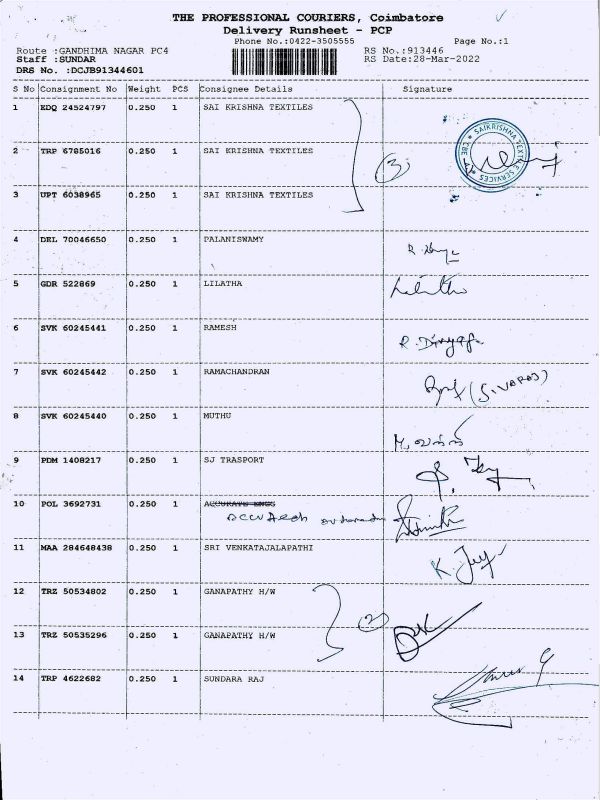 THE PROFESSIONAL COURIERS, Coimbatore
Delivery Runsheet - PCP
Phone No.:0422-3505555 Page No.:1
Route :GANDHIMA NAGAR PC4 RS No.:913446
Staff :SUNDAR RS Date:28-Mar-2022
DRS No. :DCJB91344601
S No Consignment No Weight PCS Consignee Details Signature
1 EDQ 24524797 0.250 1 SAI KRISHNA TEXTILES
2 TRP 6785016 0.250 1 SAI KRISHNA TEXTILES 3 SAIKRISHNA TEXTILE SERVICES CBE
3 UPT 6038965 0.250 1 SAI KRISHNA TEXTILES
4 DEL 70046650 0.250 1 PALANISWAMY
5 GDR 522869 0.250 1 LILATHA
6 SVK 60245441 0.250 1 RAMESH R. Divya
7 SVK 60245442 0.250 1 RAMACHANDRAN (SIVARAJ)
8 SVK 60245440 0.250 1 MUTHU
9 PDM 1408217 0.250 1 SJ TRASPORT
10 POL 3692731 0.250 1 ACCURATE ENGG
11 MAA 284648438 0.250 1 SRI VENKATAJALAPATHI
12 TRZ 50534802 0.250 1 GANAPATHY H/W
2
13 TRZ 50535296 0.250 1 GANAPATHY H/W
14 TRP 4622682 0.250 1 SUNDARA RAJ